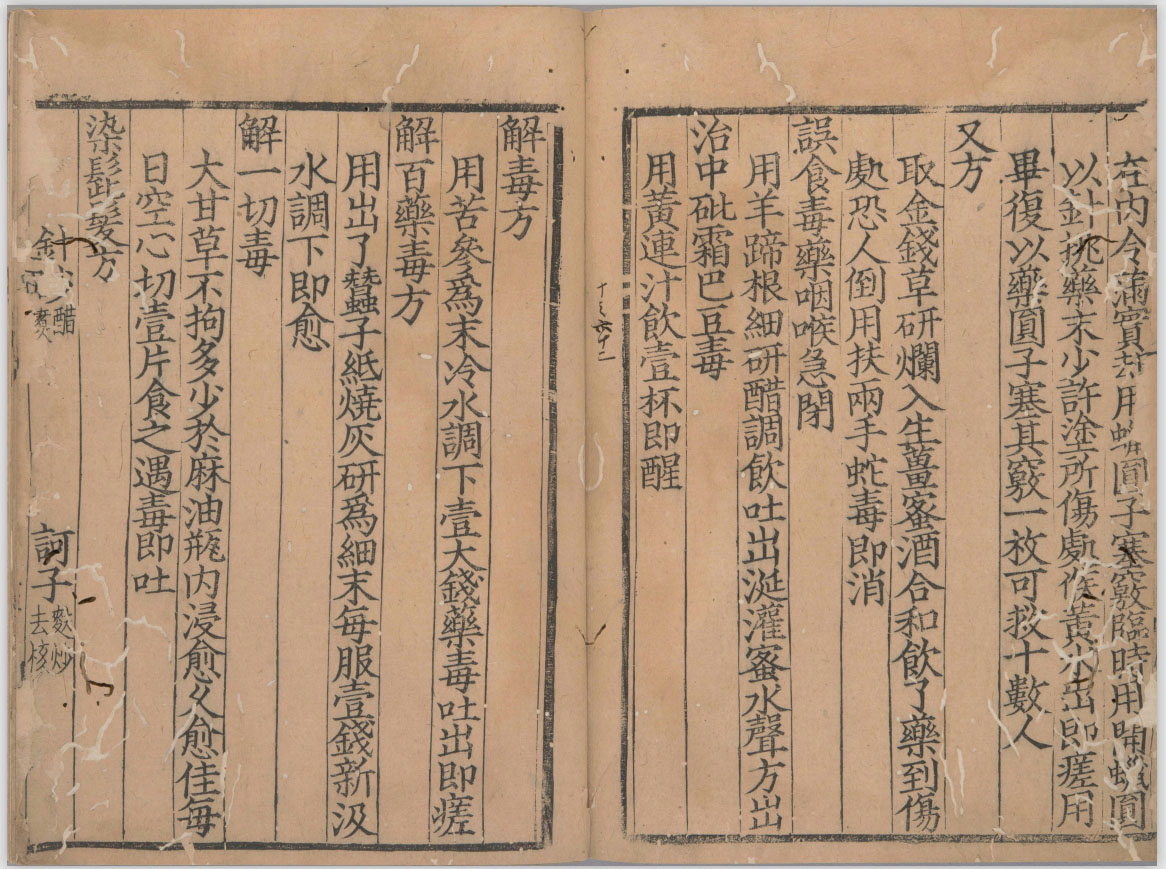 在内令滿實却用蠟圓子塞竅臨時用開蠟圓
以針挑藥末少許塗所傷處候黃水出即瘥用
畢復以藥圓子塞其竅一枚可救十數人
又方
取金錢草研爛入生薑蜜酒合和飲了藥到傷
處恐人倒用扶兩手蛇毒即消
誤食毒藥咽喉急閉
用羊蹄根細研醋調飲吐出涎灌蜜水聲方出
治中砒霜巴豆毒
用黃連汁飲壹杯即醒
解毒方
用苦參爲末冷水調下壹大錢藥毒吐出即瘥
解百藥毒方
用出了蠶子紙燒灰研爲細末每服壹錢新汲
水調下即愈
解一切毒
大甘草不拘多少於麻油瓶内浸愈久愈佳每
日空心切壹片食之遇毒即吐
染髭髮方
針砂醋煑 訶子麩炒去核